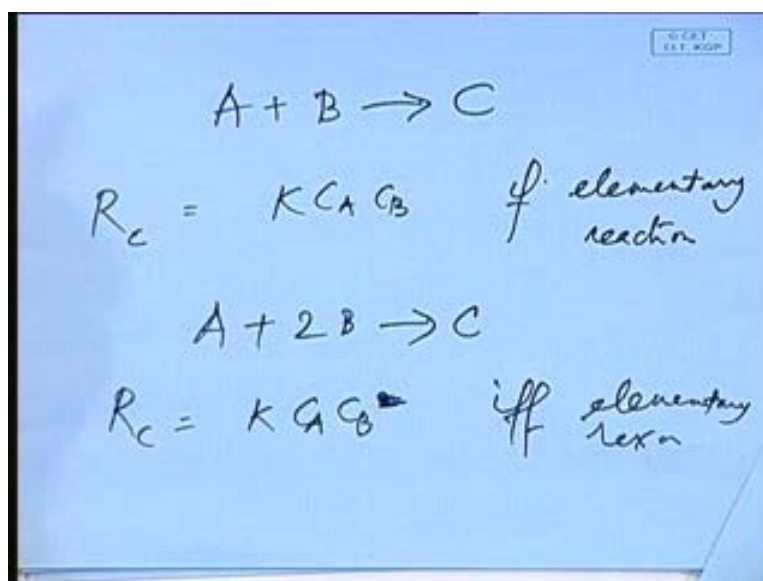 © CET
I.I.T. KGP
A + B → C
R_C = K C_A C_B if elementary
reaction
A + 2B → C
R_C = K C_A C_B iff elementary
rexn